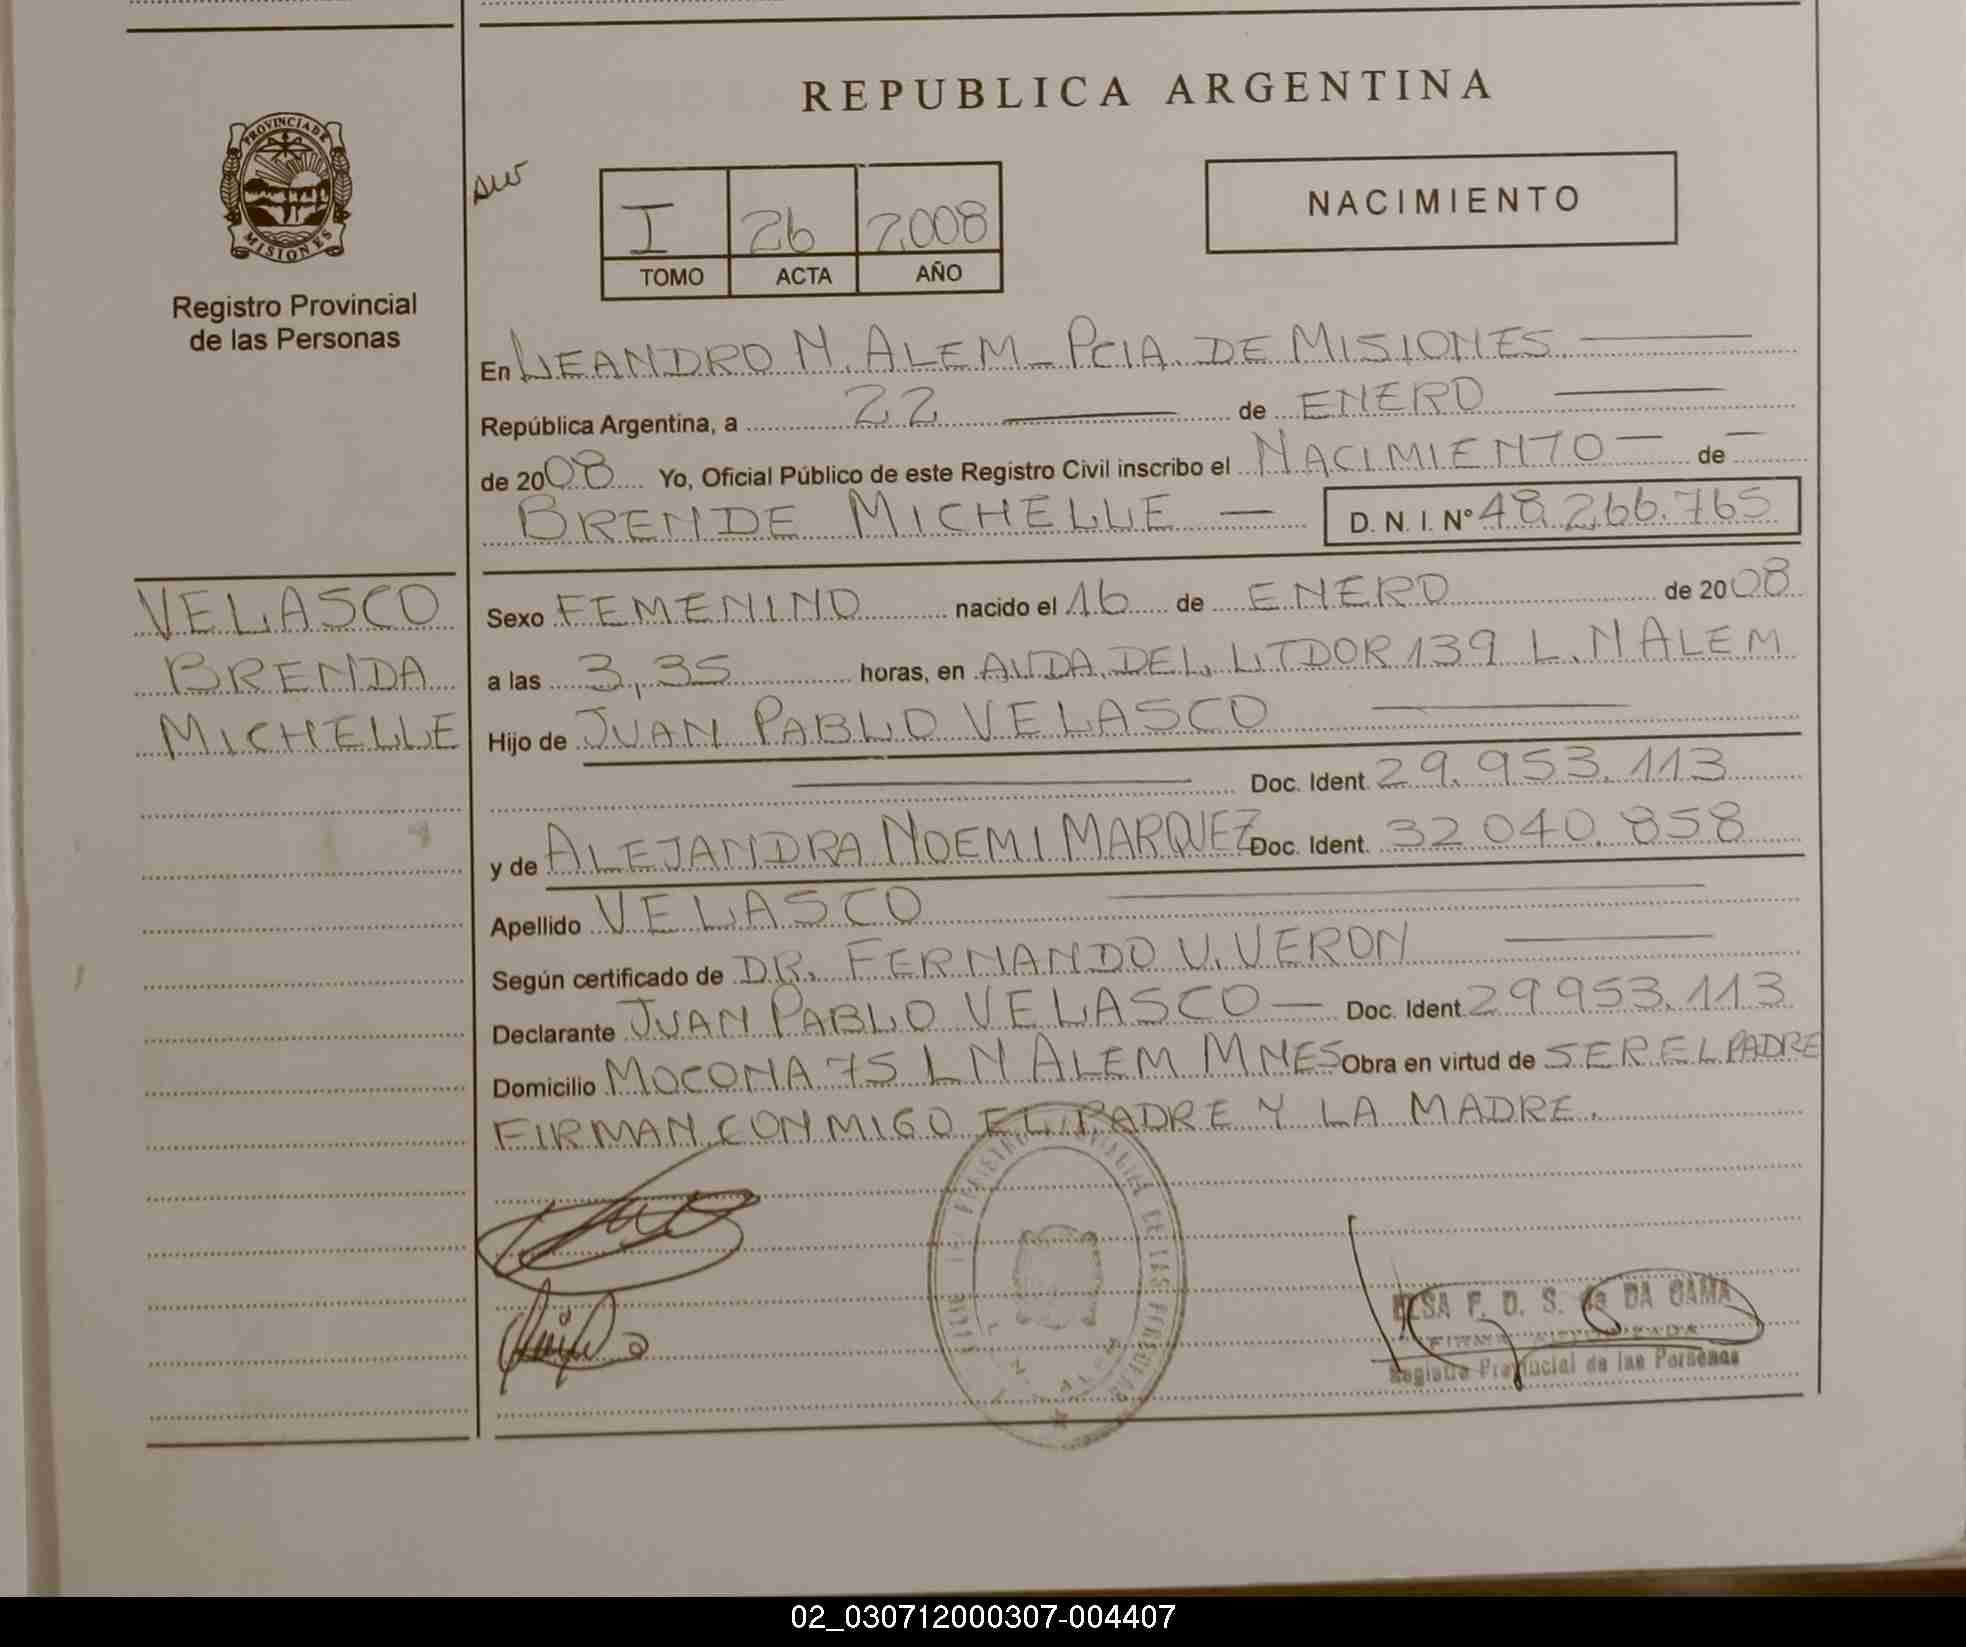 REPUBLICA ARGENTINA
PROVINCIA DE MISIONES
Registro Provincial
de las Personas
I 26 2008
TOMO ACTA AÑO
NACIMIENTO
En LEANDRO N. ALEM - PCIA. DE MISIONES
República Argentina, a 22 de ENERO
de 2008 Yo, Oficial Público de este Registro Civil inscribo el NACIMIENTO - de -
BRENDE MICHELLE - D. N. I. Nº 48.266.765
VELASCO
BRENDA
MICHELLE
Sexo FEMENINO nacido el 16 de ENERO de 2008
a las 3,35 horas, en AVDA. DEL LTDOR 139 L. N ALEM
Hijo de JUAN PABLO VELASCO
Doc. Ident. 29.953.113
y de ALEJANDRA NOEMI MARQUEZ Doc. Ident. 32 040.858
Apellido VELASCO
Según certificado de DR. FERNANDO V. VERON
Declarante JUAN PABLO VELASCO - Doc. Ident. 29 953.113
Domicilio MOCONA 75 L N ALEM MNES Obra en virtud de SER EL PADRE
FIRMAN CONMIGO EL PADRE Y LA MADRE.
ELSA F. D. S. de DA GAMA
FIRMA AUTORIZADA
Registro Provincial de las Personas
02_030712000307-004407